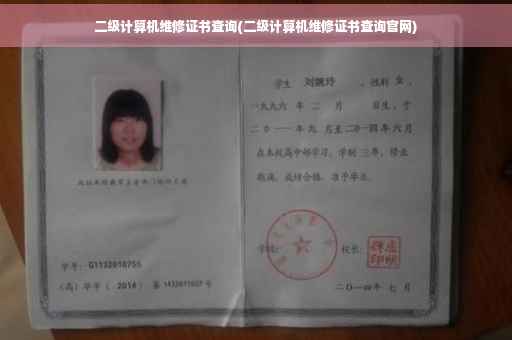 二级计算机维修证书查询(二级计算机维修证书查询官网)
学生 刘婉玲 ，性别 女 ，
一九九六 年 二 月 日生，于
二〇一一 年 九 月至二〇一四年 六 月
在本校高中部学习，学制 三年，修业
期满，成绩合格，准予毕业。
学号：G1132010755
(高) 毕字 ( 2014 ) 第 1432011027 号
学校：
校长：
二〇一四年 七 月